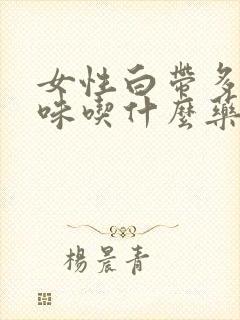 女性白帶多
味喫什麼藥
楊晨青